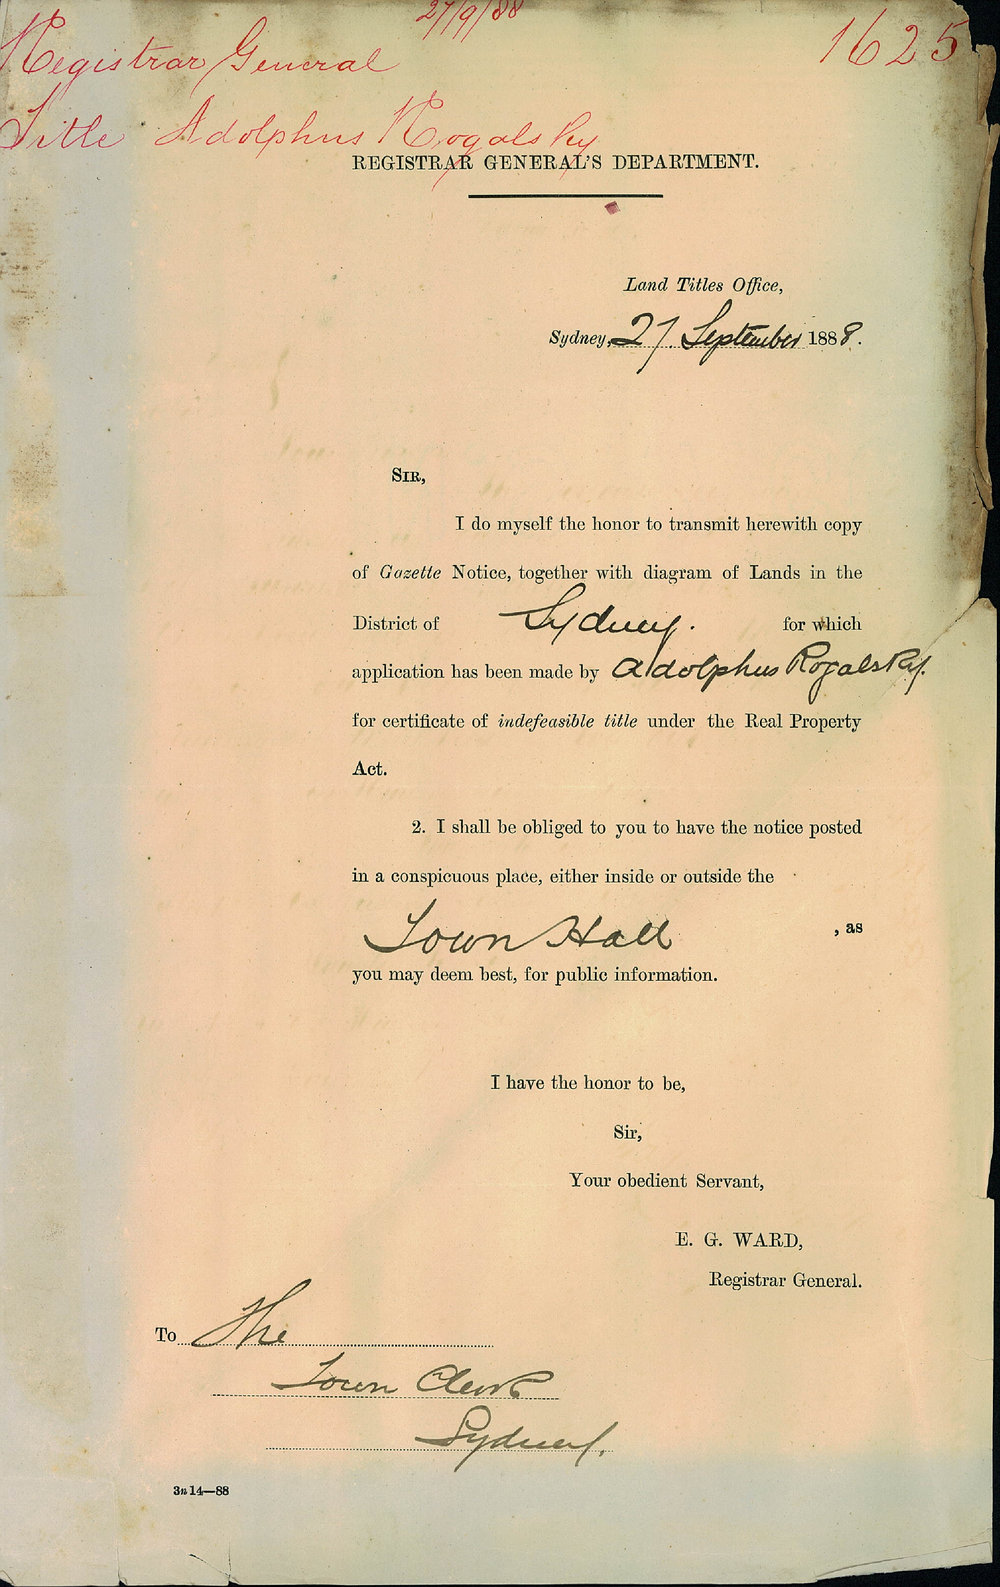 27/9/88
1625
Registrar General
Title Adolphus Rogalsky
REGISTRAR GENERAL'S DEPARTMENT.
Land Titles Office,
Sydney, 27. September 1888.
SIR,
I do myself the honor to transmit herewith copy
of Gazette Notice, together with diagram of Lands in the
District of Sydney. for which
application has been made by Adolphus Rogalsky.
for certificate of indefeasible title under the Real Property
Act.
2. I shall be obliged to you to have the notice posted
in a conspicuous place, either inside or outside the
Town Hall , as
you may deem best, for public information.
I have the honor to be,
Sir,
Your obedient Servant,
E. G. WARD,
Registrar General.
To The
Town Clerk
Sydney.
3n14—88